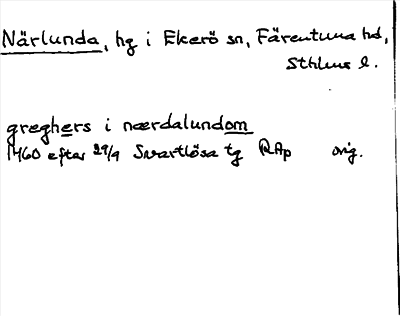 Närlunda, hg i Ekerö sn, Färentuna hd,
Sthlms l.
greghers i nærdalundom
1460 efter 29/9 Svartlösa tg RAp orig.